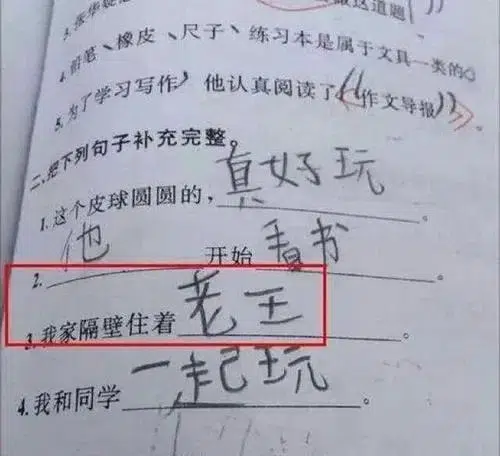 做这道题
4.铅笔、橡皮、尺子、练习本是属于文具一类的。
5.为了学习写作,他认真阅读了《作文导报》。
二、把下列句子补充完整。
1.这个皮球圆圆的,真好玩。
2.他开始看书。
3.我家隔壁住着老王。
4.我和同学一起玩。